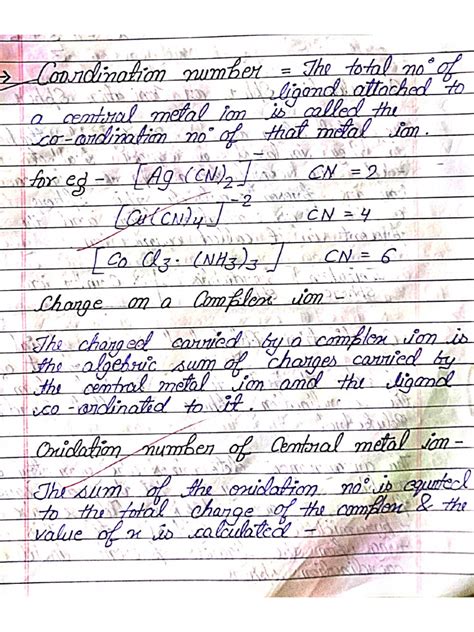 → Coordination number = The total no° of
ligand attached to
a central metal ion is called the
co-ordination no° of that metal ion.
for eg - [Ag (CN)2]⁻ CN = 2
[Cu(CN)4]⁻² CN = 4
[Co Cl3 · (NH3)3] CN = 6
Charge on a Complex ion -
The charged carried by a complex ion is
the algebric sum of charges carried by
the central metal ion and the ligand
co-ordinated to it.
Oxidation number of Central metal ion -
The sum of the oxidation no° is equated
to the total charge of the complex & the
value of x is calculated -